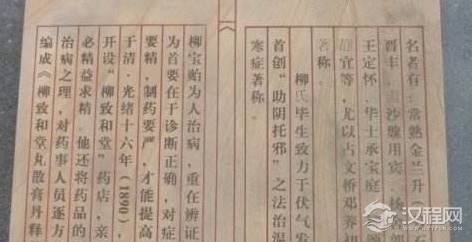 名者有 常熟金兰升
晋丰 沙滕用宾 杨
王定怀 华士承宝庭
宜等,尤以占文桥邓养初
著称。
柳氏毕生致力于伏气发
首创“助阴托邪”之法治温
寒症著称。
柳宝贻为人治病,重在辨证
为首要在于诊断正确,对症
要精,制药要严,才能提高
于清·光绪十六年(1890),
开设“柳致和堂”药店,亲
必精益求精。他还将药品的
治病之理,对药事人员逐方
编成《柳致和堂丸散膏丹释
汉程网